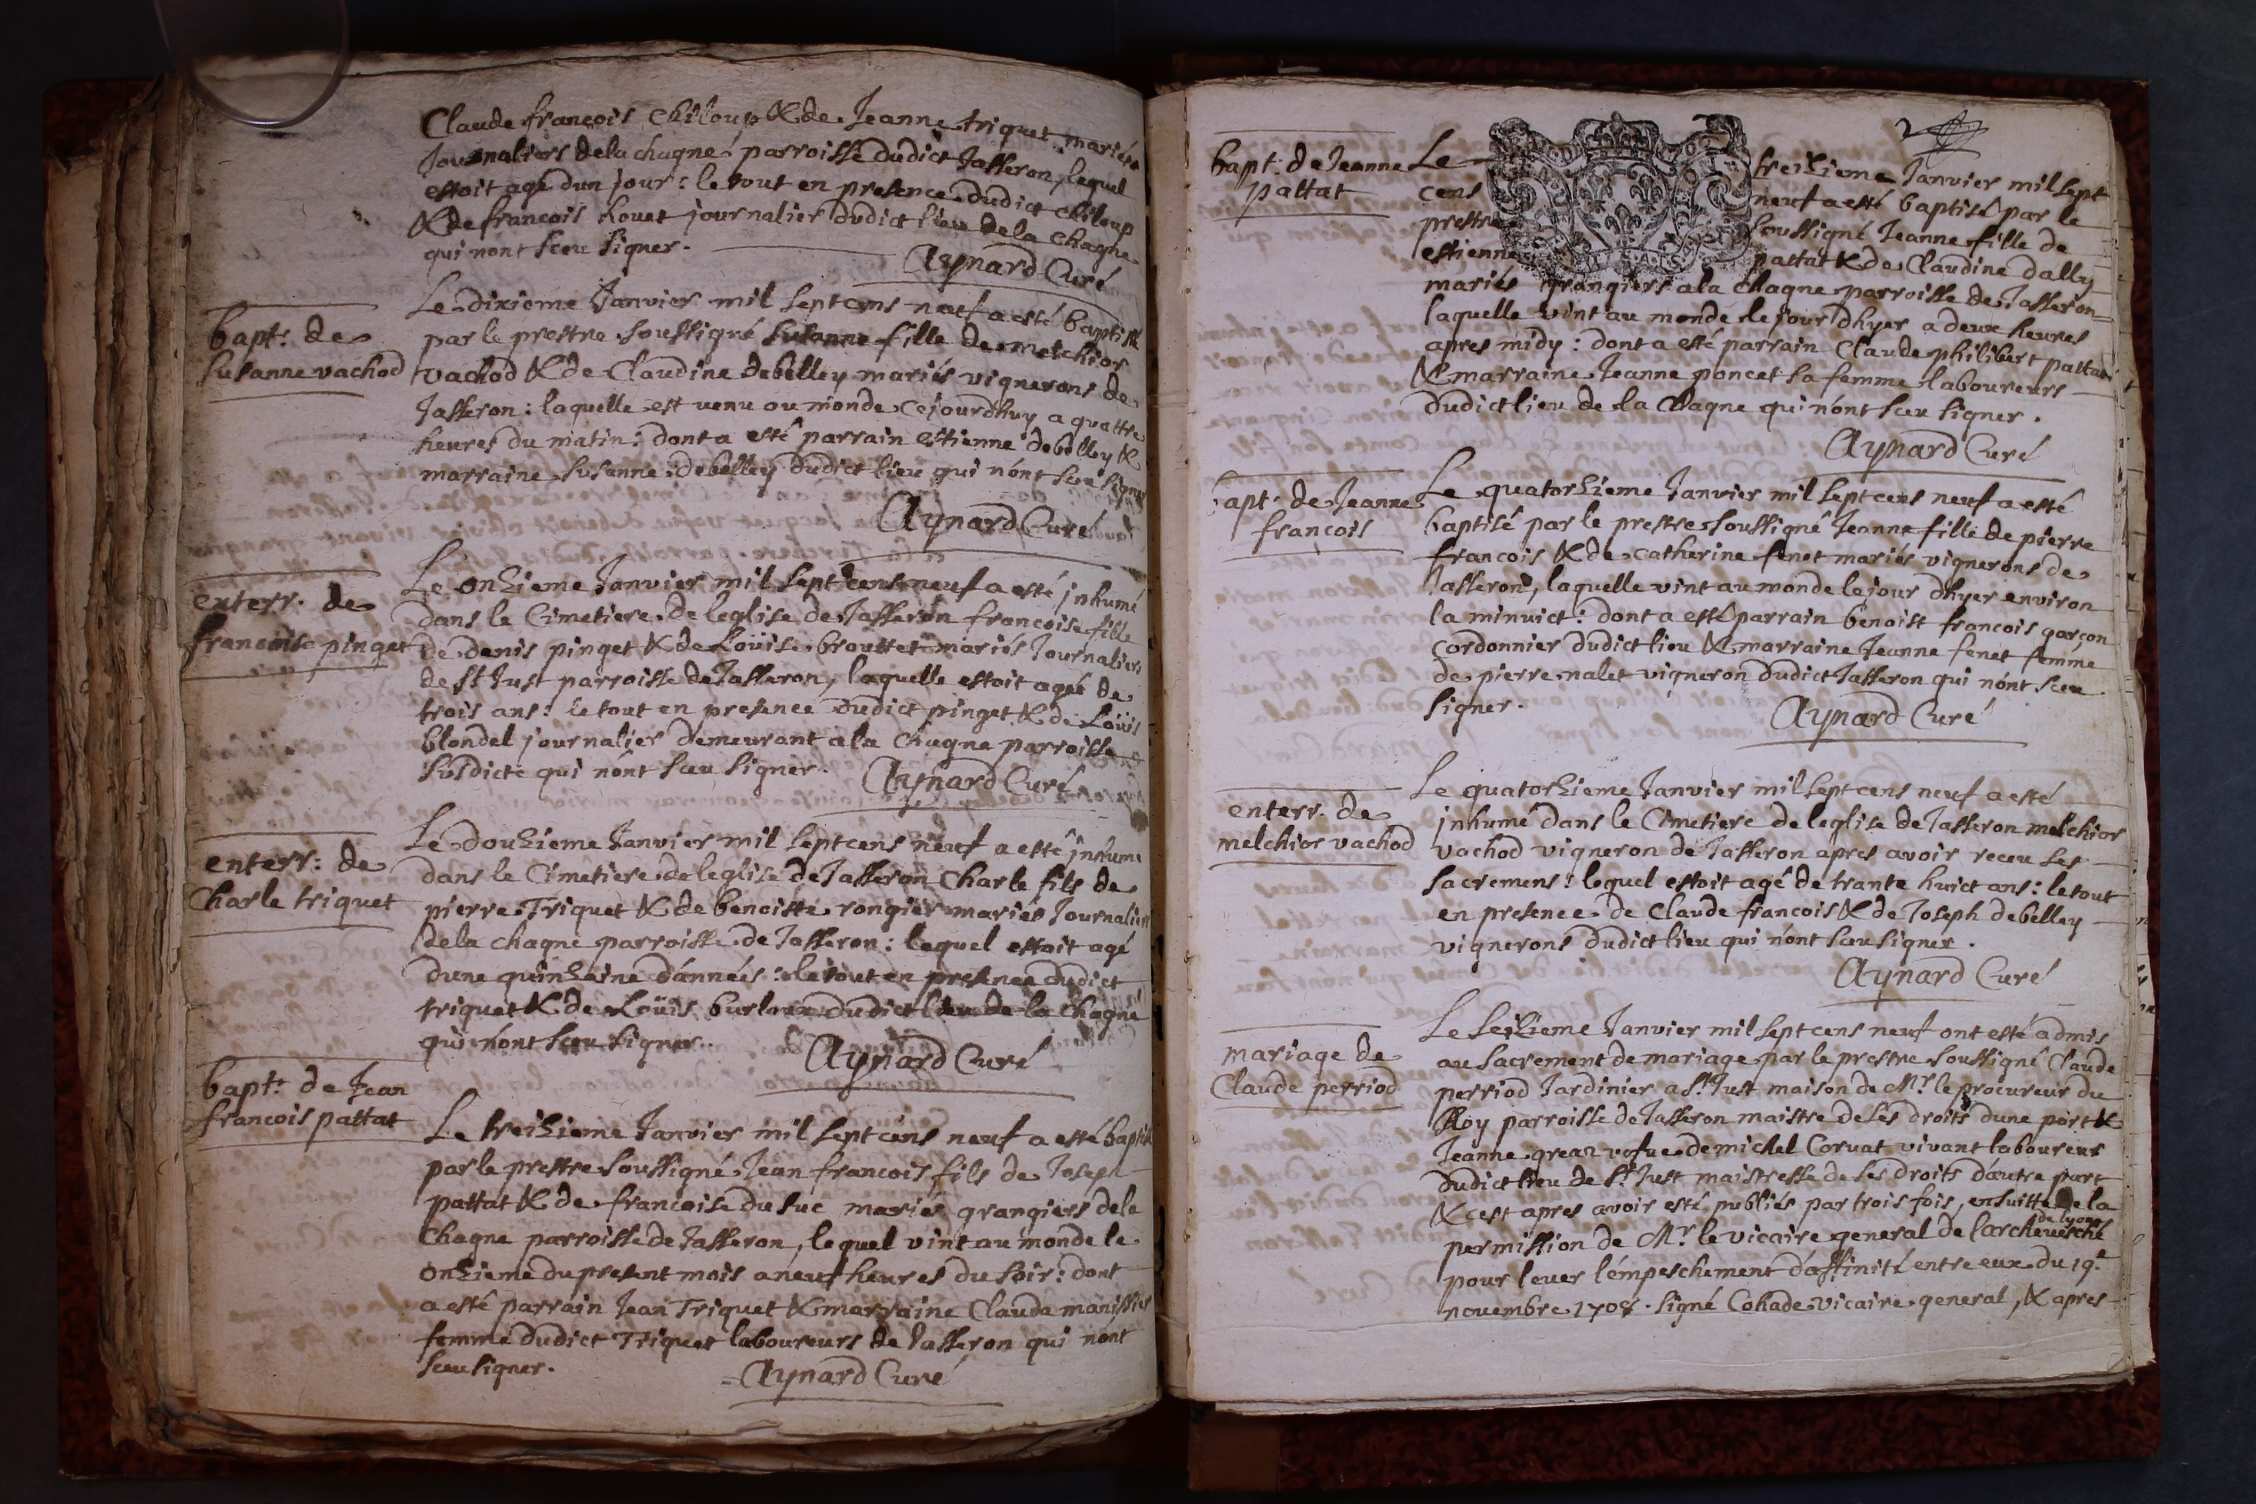 Claude françois Chiloup & de Jeanne triquet mariés
Journaliers de la chagne parroisse dudict Jasseron, lequel
estoit agé dun jour : le tout en presence dudict Chiloup
& de françois houet journalier dudict lieu de la chagne
qui nont sceu signer.
Aynard Curé
bapt: de
susanne vachod
Le dixieme Janvier mil sept cens neuf a esté baptisé
par le prestre soussigné susanne fille de melchior
vachod & de Claudine debelley mariés vignerons de
Jasseron : laquelle est venu au monde cejourdhuy a quattre
heures du matin : dont a esté parrain estienne debelley &
marraine susanne debelley dudict lieu qui nont sceu signer
Aynard Curé
enterr. de
francoise pinget
Le onzieme Janvier mil sept cens neuf a esté jnhumé
dans le Cimetiere de leglise de Jasseron francoise fille
de denis pinget & de Loüise brouttet mariés Journaliers
de st Just parroisse de Jasseron, laquelle estoit agée de
trois ans : le tout en presence dudict pinget & de Loüis
blondel journalier demeurant a la chagne parroisse
susdicte qui nont sceu signer.
Aynard Curé
enterr: de
Charle triquet
Le douzieme Janvier mil sept cens neuf a esté jnhumé
dans le Cimetiere de leglise de Jasseron Charle fils de
pierre Triquet & de benoiste rongier mariés Journaliers
de la chagne parroisse de Jasseron : lequel estoit agé
dune quinzaine dánnées : le tout en presence dudict
triquet & de Loüis dudict lieu de la chagne
qui nont sceu signer.
Aynard Curé
bapt: de Jean
francois pattat
Le treizieme Janvier mil sept cens neuf a esté baptisé
par le prestre soussigné Jean francois fils de Joseph
pattat & de francoise du suc mariés grangiers de la
Chagne parroisse de Jasseron, lequel vint au monde le
onzieme du present mois a neuf heures du soir : dont
a esté parrain Jean Triquet & marraine Clauda manissier
femme dudict Triquet laboureurs de Jasseron qui nont
sceu signer.
Aynard Curé
2
bapt: de Jeanne
pattat
Le treizieme Janvier mil sept
cens neuf a esté baptisé par le
prestre soussigné Jeanne fille de
estienne pattat & de Claudine dally
mariés grangiers a la chagne parroisse de Jasseron
laquelle vint au monde le jour dhyer a deux heures
apres midy : dont a esté parrain Claude philibert pattat
& marraine Jeanne poncet sa femme laboureurs
dudict lieu de la Chagne qui nónt sceu signer.
Aynard Curé
bapt: de Jeanne
françois
Le quatorzieme Janvier mil sept cens neuf a esté
baptisé par le prestre soussigné Jeanne fille de pierre
francois & de catherine fenet mariés vignerons de
Jasseron, laquelle vint au monde le jour dhyer environ
la minuict : dont a esté parrain benoist francois garçon
cordonnier dudict lieu & marraine Jeanne fenet femme
de pierre nalet vigneron dudict Jasseron qui nónt sceu
signer.
Aynard Curé
enterr. de
melchior vachod
Le quatorzieme Janvier mil sept cens neuf a esté
jnhumé dans le Cimetiere de leglise de Jasseron melchior
vachod vigneron de Jasseron apres avoir receu ses
sacremens : lequel estoit agé de trante huict ans : le tout
en presence de Claude francois & de Joseph debelley
vignerons dudict lieu qui nónt sceu signer.
Aynard Curé
mariage de
Claude perriod
Le seizieme Janvier mil sept cens neuf ont esté admis
au sacrement de mariage par le prestre soussigné Claude
perriod Jardinier a st Just maison de Mr le procureur du
Roy parroisse de Jasseron maistre de ses droits dune part &
Jeanne vefve de michel Corvat vivant laboureur
dudict lieu de st Just maistresse de ses droits dautre part
& cest apres avoir esté publiés par trois fois, ensuitte de la
permission de Mr le vicaire general de larchevesché de lyon
pour lever lémpeschement dáffinité entre eux du 19e
novembre 1708. signé Cohade vicaire general, & apres